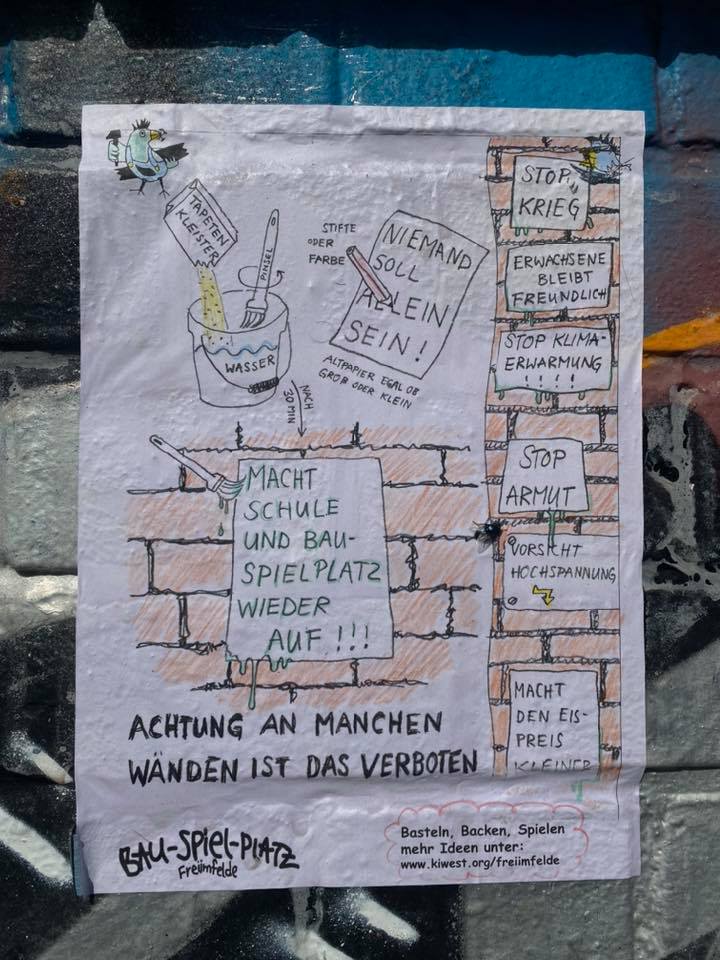 TAPETEN
KLEISTER
PINSEL
WASSER
STIFTE
ODER
FARBE
NIEMAND
SOLL
ALLEIN
SEIN!
ALTPAPIER EGAL OB
GROB ODER KLEIN
NACH
30 MIN
MACHT
SCHULE
UND BAU-
SPIELPLATZ
WIEDER
AUF!!!
STOP
KRIEG
ERWACHSENE
BLEIBT
FREUNDLICH
STOP KLIMA-
ERWÄRMUNG
!!!!
STOP
ARMUT
VORSICHT
HOCHSPANNUNG
MACHT
DEN EIS-
PREIS
KLEINER
ACHTUNG AN MANCHEN
WÄNDEN IST DAS VERBOTEN
BAU-SPIEL-PLATZ
Freiimfelde
Basteln, Backen, Spielen
mehr Ideen unter:
www.kiwest.org/freiimfelde